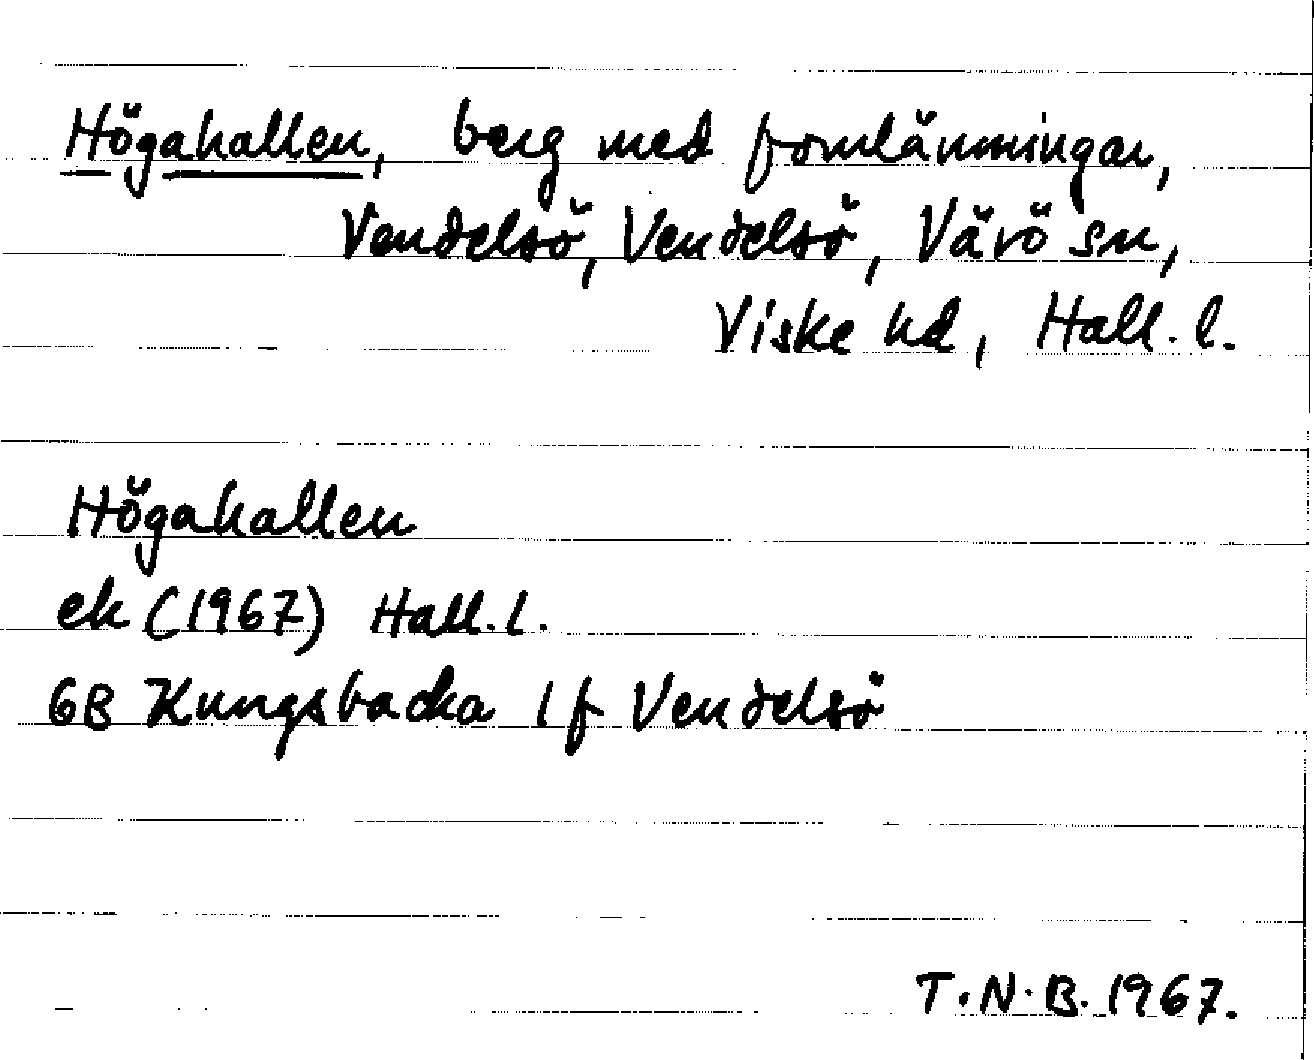 Högahallen, berg med fornlämningar,
Vendelsö, Vendelsö, Värö sn,
Viske hd, Hall. l.
Högahallen
ek (1967) Hall. l.
6B Kungsbacka 1 f Vendelsö
T.N.B. 1967.